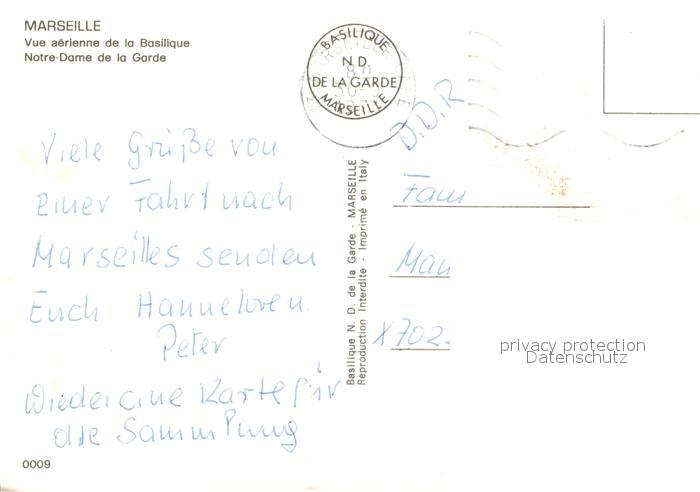 MARSEILLE
Vue aérienne de la Basilique
Notre-Dame de la Garde
BASILIQUE
N.D.
DE LA GARDE
MARSEILLE
D.D.R
Viele Grüße von
einer Fahrt nach
Marseilles senden
Euch Hannelore u.
Peter
Wieder eine Karte für
die Sammlung
Basilique N. D. de la Garde - MARSEILLE
Reproduction Interdite - Imprimé en Italy
Fam
Man
X702
privacy protection
Datenschutz
0009